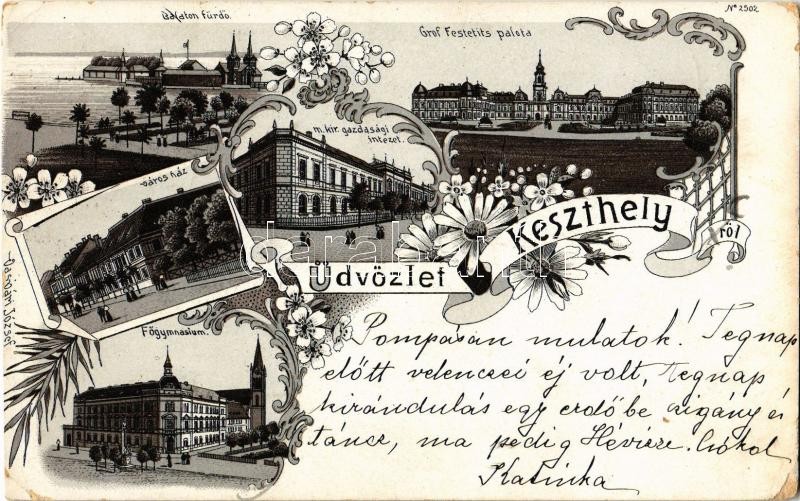 Balaton fürdő.
Grof Festetits palota
No 2502
m. kir. gazdasági
intézet.
Város ház
Gasvári József
Főgymnasium.
Üdvözlet
Keszthely
ről
Pompásan mulatok! Tegnap
előtt velencsei éj volt, tegnap
kirándulás egy erdőbe czigány és
táncz, ma pedig Hévizre. Csókol
Katinka